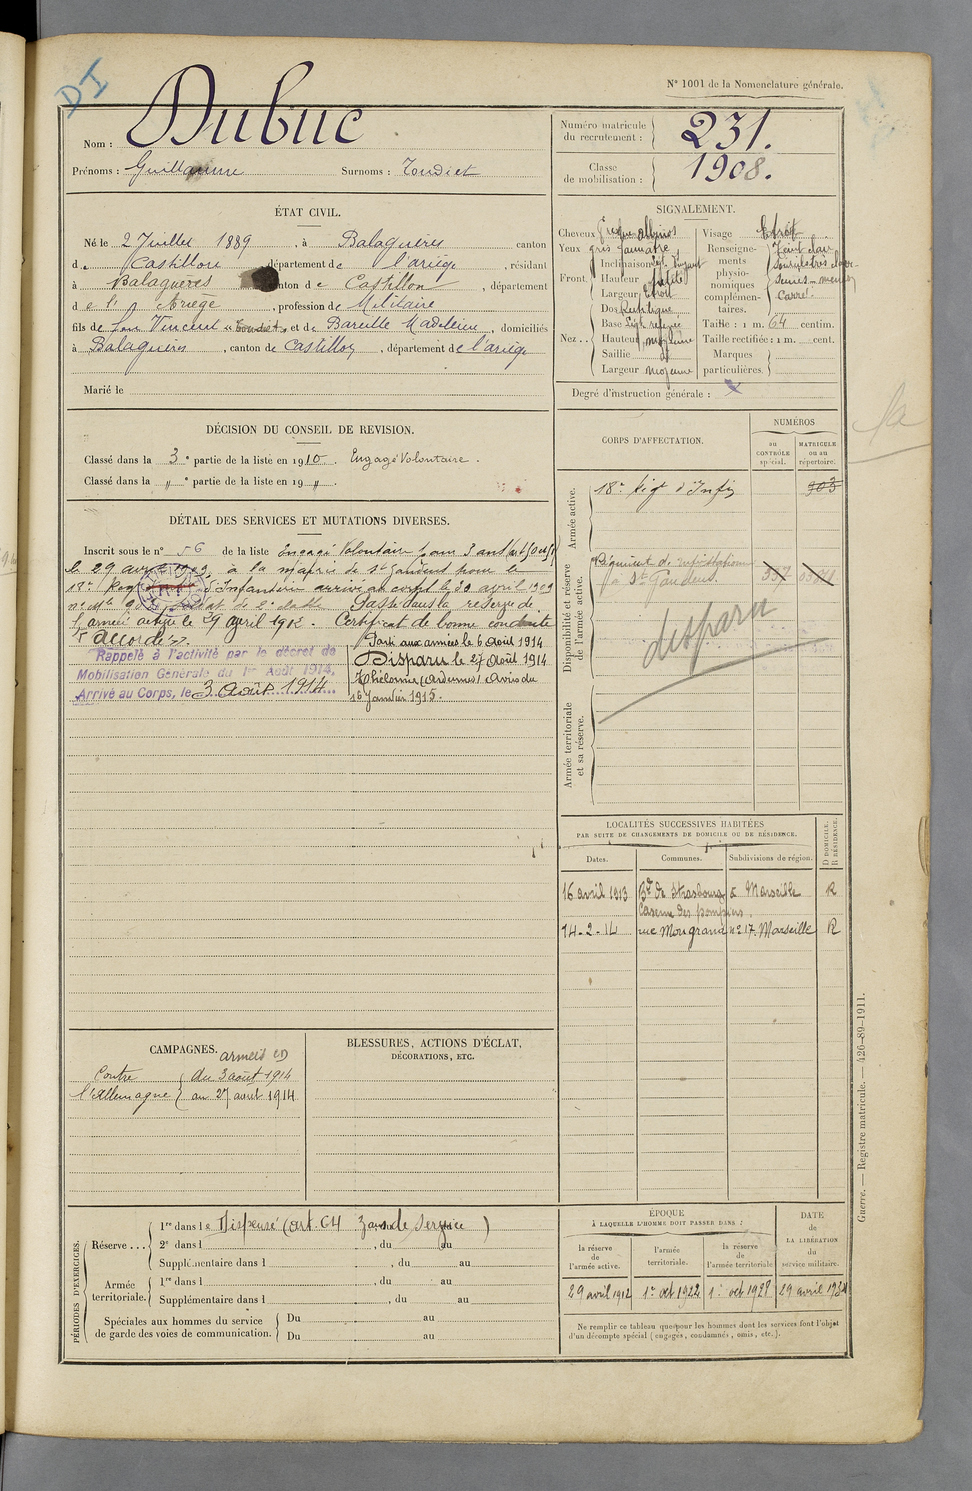 DI
N° 1001 de la Nomenclature générale.
Nom : Dubuc
Prénoms : Guillaume Surnoms : Toudiet
Numéro matricule du recrutement : 231.
Classe de mobilisation : 1908.
ÉTAT CIVIL.
Né le 2 Juillet 1889, à Balaguères canton
de Castillon département de l'ariège, résidant
à Balaguères canton de Castillon, département
de l'Ariège, profession de Militaire
fils de Vincent et de Bareille Madeleine, domiciliés
à Balaguères, canton de Castillon, département de l'ariège
Marié le
SIGNALEMENT.
Cheveux
Yeux gris jaunatre
Front. Inclinaison
Hauteur petite
Largeur étroit
Nez. Dos Rectiligne
Base
Hauteur moyenne
Saillie de
Largeur moyenne
Visage étroit
Renseignements physionomiques complémentaires. Teint clair
sourcils très clair
Carré.
Taille : 1 m. 64 centim.
Taille rectifiée : 1 m. cent.
Marques particulières.
Degré d'instruction générale : X
DÉCISION DU CONSEIL DE REVISION.
Classé dans la 3e partie de la liste en 1910. Engagé Volontaire.
Classé dans la " e partie de la liste en 19 ".
DÉTAIL DES SERVICES ET MUTATIONS DIVERSES.
Inscrit sous le n° 56 de la liste Engagé Volontaire pour 3 ans
le 29 avril 1909, à la mairie de St Gaudens pour le
18e Régt d'Infanterie arrivé au corps le 30 avril 1909
soldat de 2e classe Passé dans la réserve de
l'armée active le 29 avril 1912. Certificat de bonne conduite
accordé.
Rappelé à l'activité par le décret de
Mobilisation Générale du 1er Août 1914,
Arrivé au Corps, le 3 Août 1914
Parti aux armées le 6 Août 1914
Disparu le 27 Août 1914
Thélonne (Ardennes) Avis du
16 Janvier 1915.
CORPS D'AFFECTATION.
NUMÉROS
au CONTRÔLE spécial.
MATRICULE ou au répertoire.
Armée active.
18e Rég d'Infie 903
Disponibilité et réserve de l'armée active.
Régiment d'infanterie
à St Gaudens. 357
disparu
Armée territoriale et sa réserve.
LOCALITÉS SUCCESSIVES HABITÉES
PAR SUITE DE CHANGEMENTS DE DOMICILE OU DE RÉSIDENCE.
Dates. Communes. Subdivisions de région. D DOMICILE. R RÉSIDENCE.
16 avril 1913 Bd de Strasbourg à Marseille R
Caserne des pompiers.
14-2-14 rue Mongrand n° 17. Marseille R
CAMPAGNES.
Contre l'Allemagne
du 3 août 1914
au 27 août 1914
BLESSURES, ACTIONS D'ÉCLAT,
DÉCORATIONS, ETC.
PÉRIODES D'EXERCICES.
Réserve... 1re dans le Dispensé (art. 64 )
2e dans l , du au
Supplémentaire dans l , du au
Armée territoriale. 1re dans l , du au
Supplémentaire dans l , du au
Spéciales aux hommes du service de garde des voies de communication. Du au
Du au
ÉPOQUE
À LAQUELLE L'HOMME DOIT PASSER DANS :
la réserve de l'armée active.
l'armée territoriale.
la réserve de l'armée territoriale
DATE de LA LIBÉRATION du service militaire.
29 avril 1912 1er oct 1922 1er oct 1928 29 avril
Ne remplir ce tableau que pour les hommes dont les services font l'objet
d'un décompte spécial (engagés, condamnés, omis, etc.).
Guerre. — Registre matricule. — 420-89-1911.